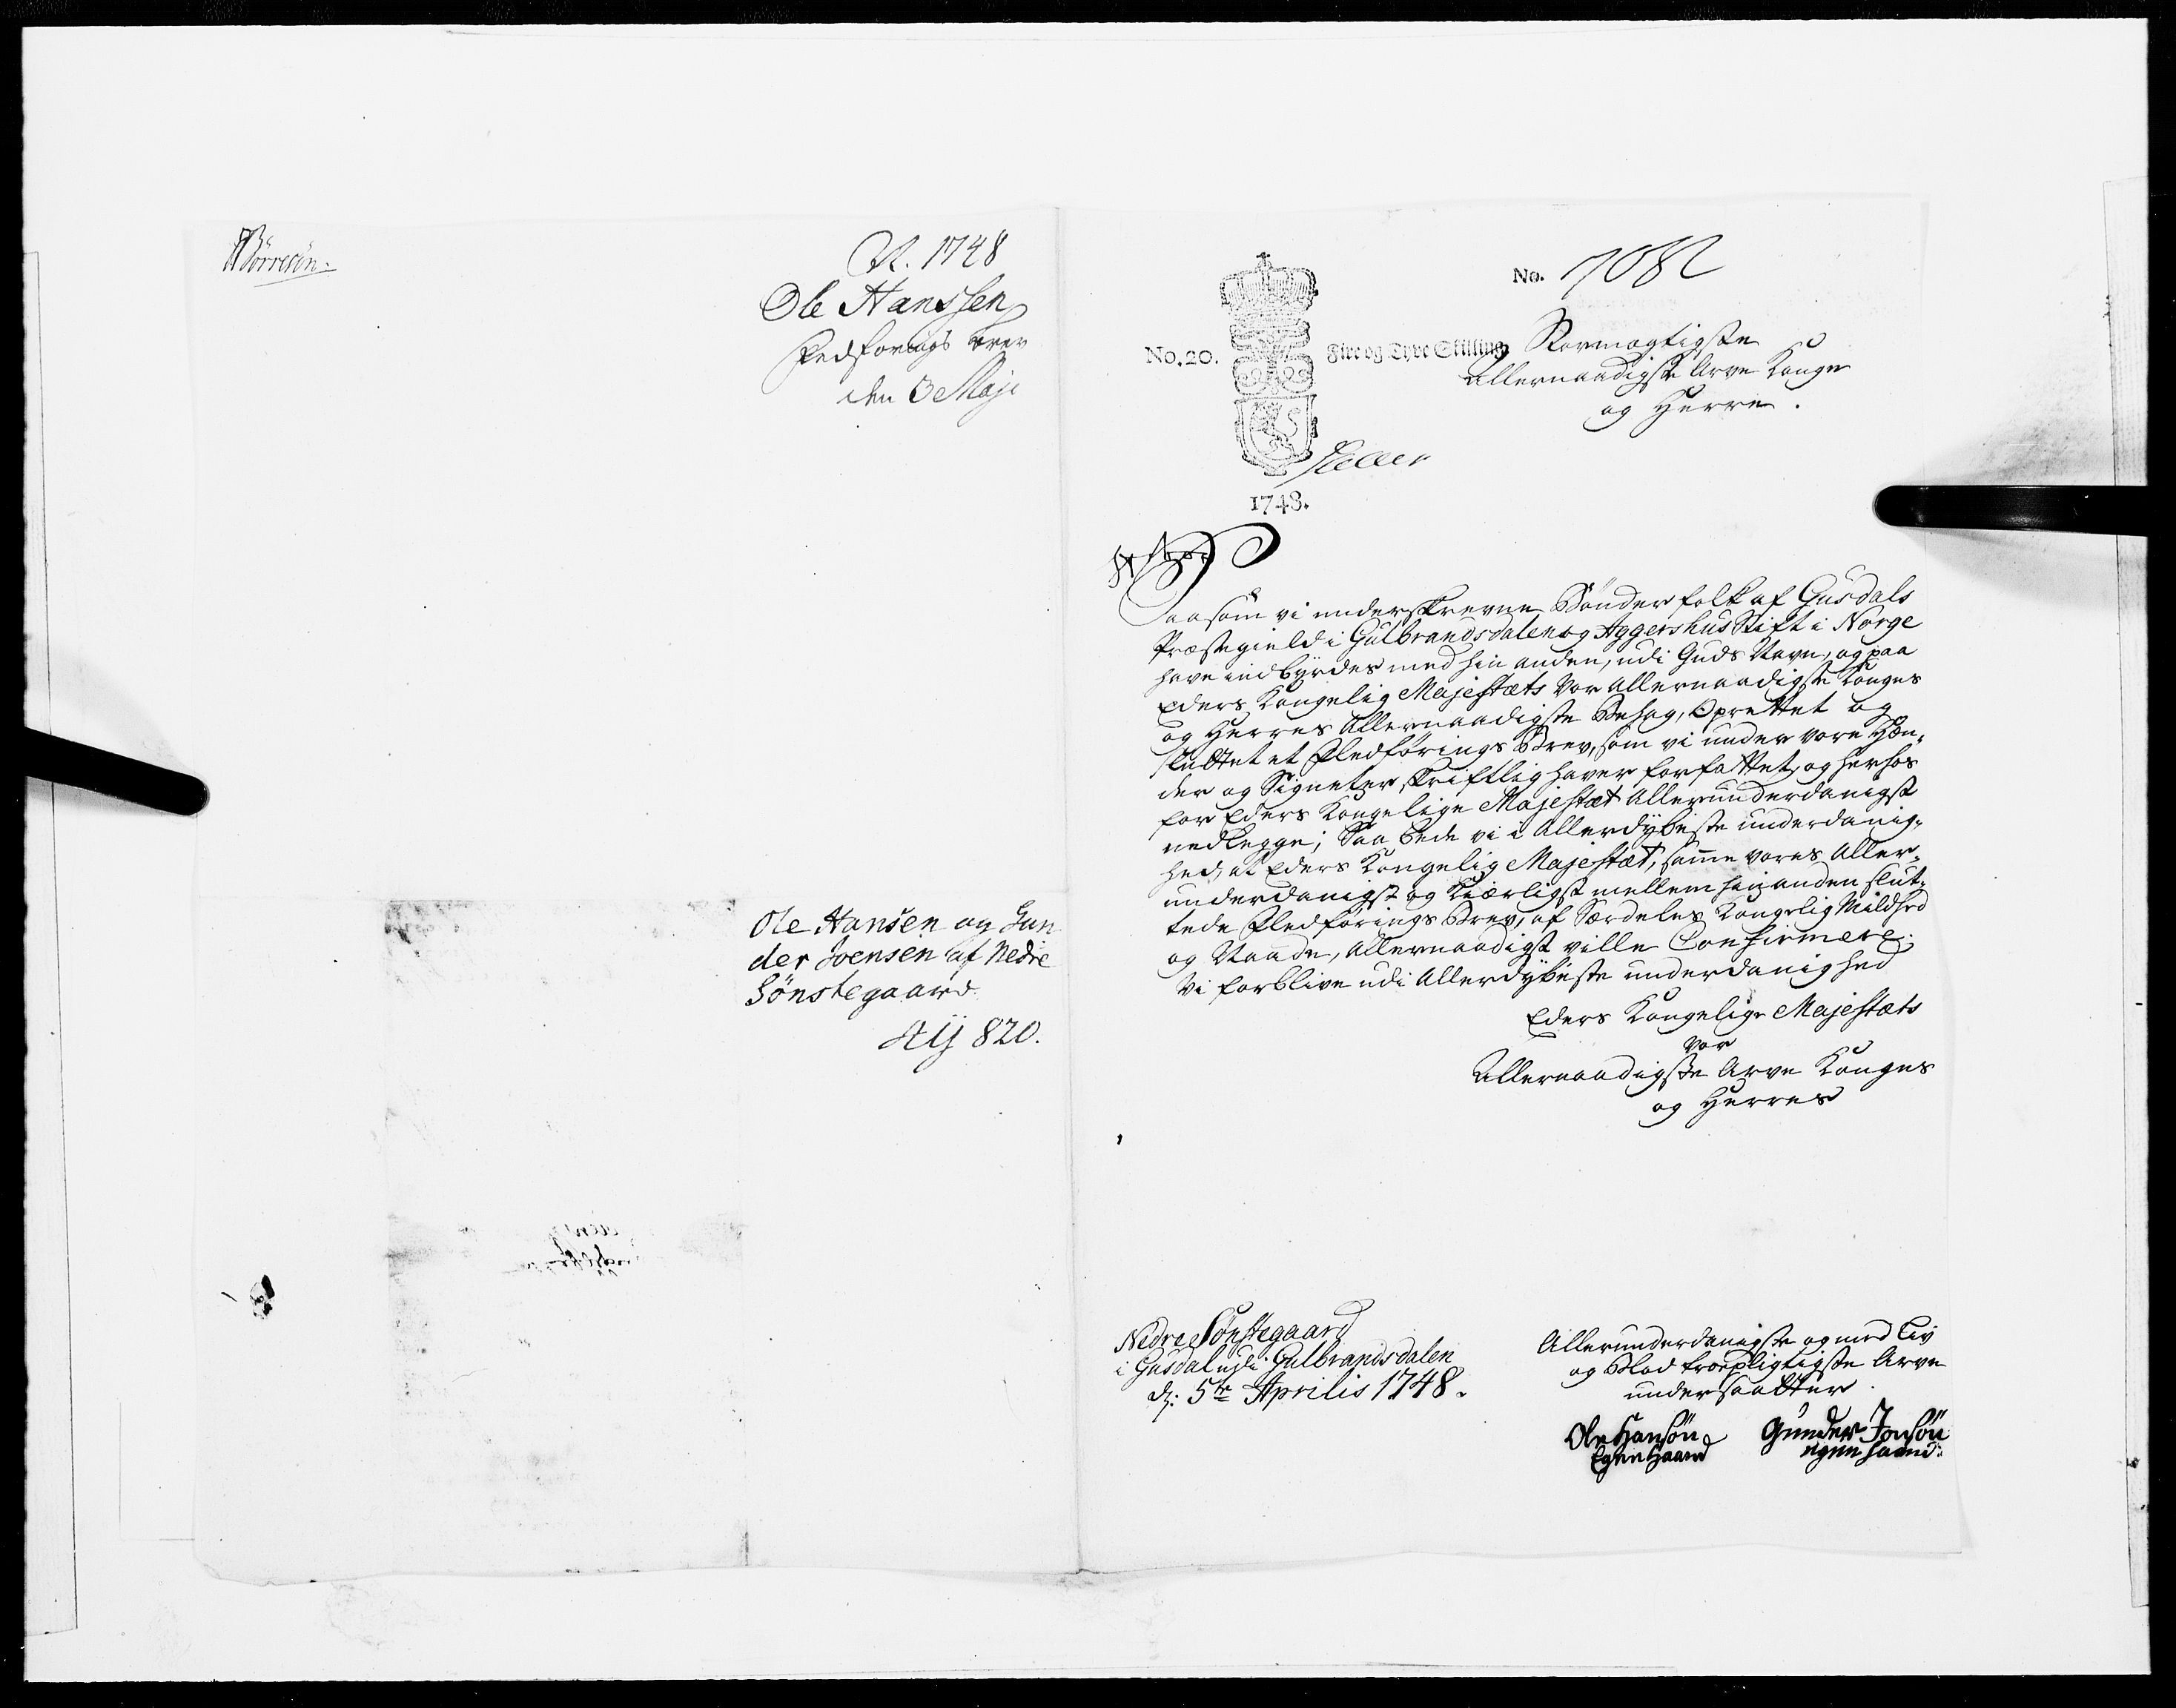 Børresøn.
A. 1748
Ole Hanssen
Fledførings brev
den 3 Maji
Ole Hansen og Gun
der Joensen af Nedre
Sønstegaard
820.
No. 7082
No. 20.
Fire og Tyve Skilling
1748.
Stormægtigste
Allernaadigste Arve Konge
og Herre.
Saasom vi underskrevne Bønder folk af Gusdals
Præstegield i Gulbrandsdalen og Aggershus Stift i Norge
have indbyrdes med hin anden, udi Guds Navn, og paa
Eders Kongelig Majestæts Vor Allernaadigste Konges
og Herres Allernaadigste Behag, Oprettet og
sluttet et Fledførings Brev, som vi under vore Hæn-
der og Signeter, skriftlig haver forfattet, og herhos
for Eders Kongelige Majestæt Allerunderdanigst
nedlegge; Saa bede vi i Allerdybeste underdanig-
hed, at Eders Kongelig Majestæt, samme vores Aller-
underdanigst og Kiærligst mellem hin anden slut-
tede Fledførings Brev, af Særdeles Kongelig Mildhed
og Naade, Allernaadigst ville Confirmere.
Vi forblive udi Allerdybeste underdanighed
Eders Kongelige Majestæts
Vor
Allernaadigste Arve Konges
og Herres
Nedre Sønstegaard
i Gusdal udi Gulbrandsdalen
d: 5te Aprilis 1748.
Allerunderdanigste og med Liv
og Blod troepligtigste Arve
undersaatter
Ole Hansøn Gunder Jonsøn
Egen Haand egen haand: